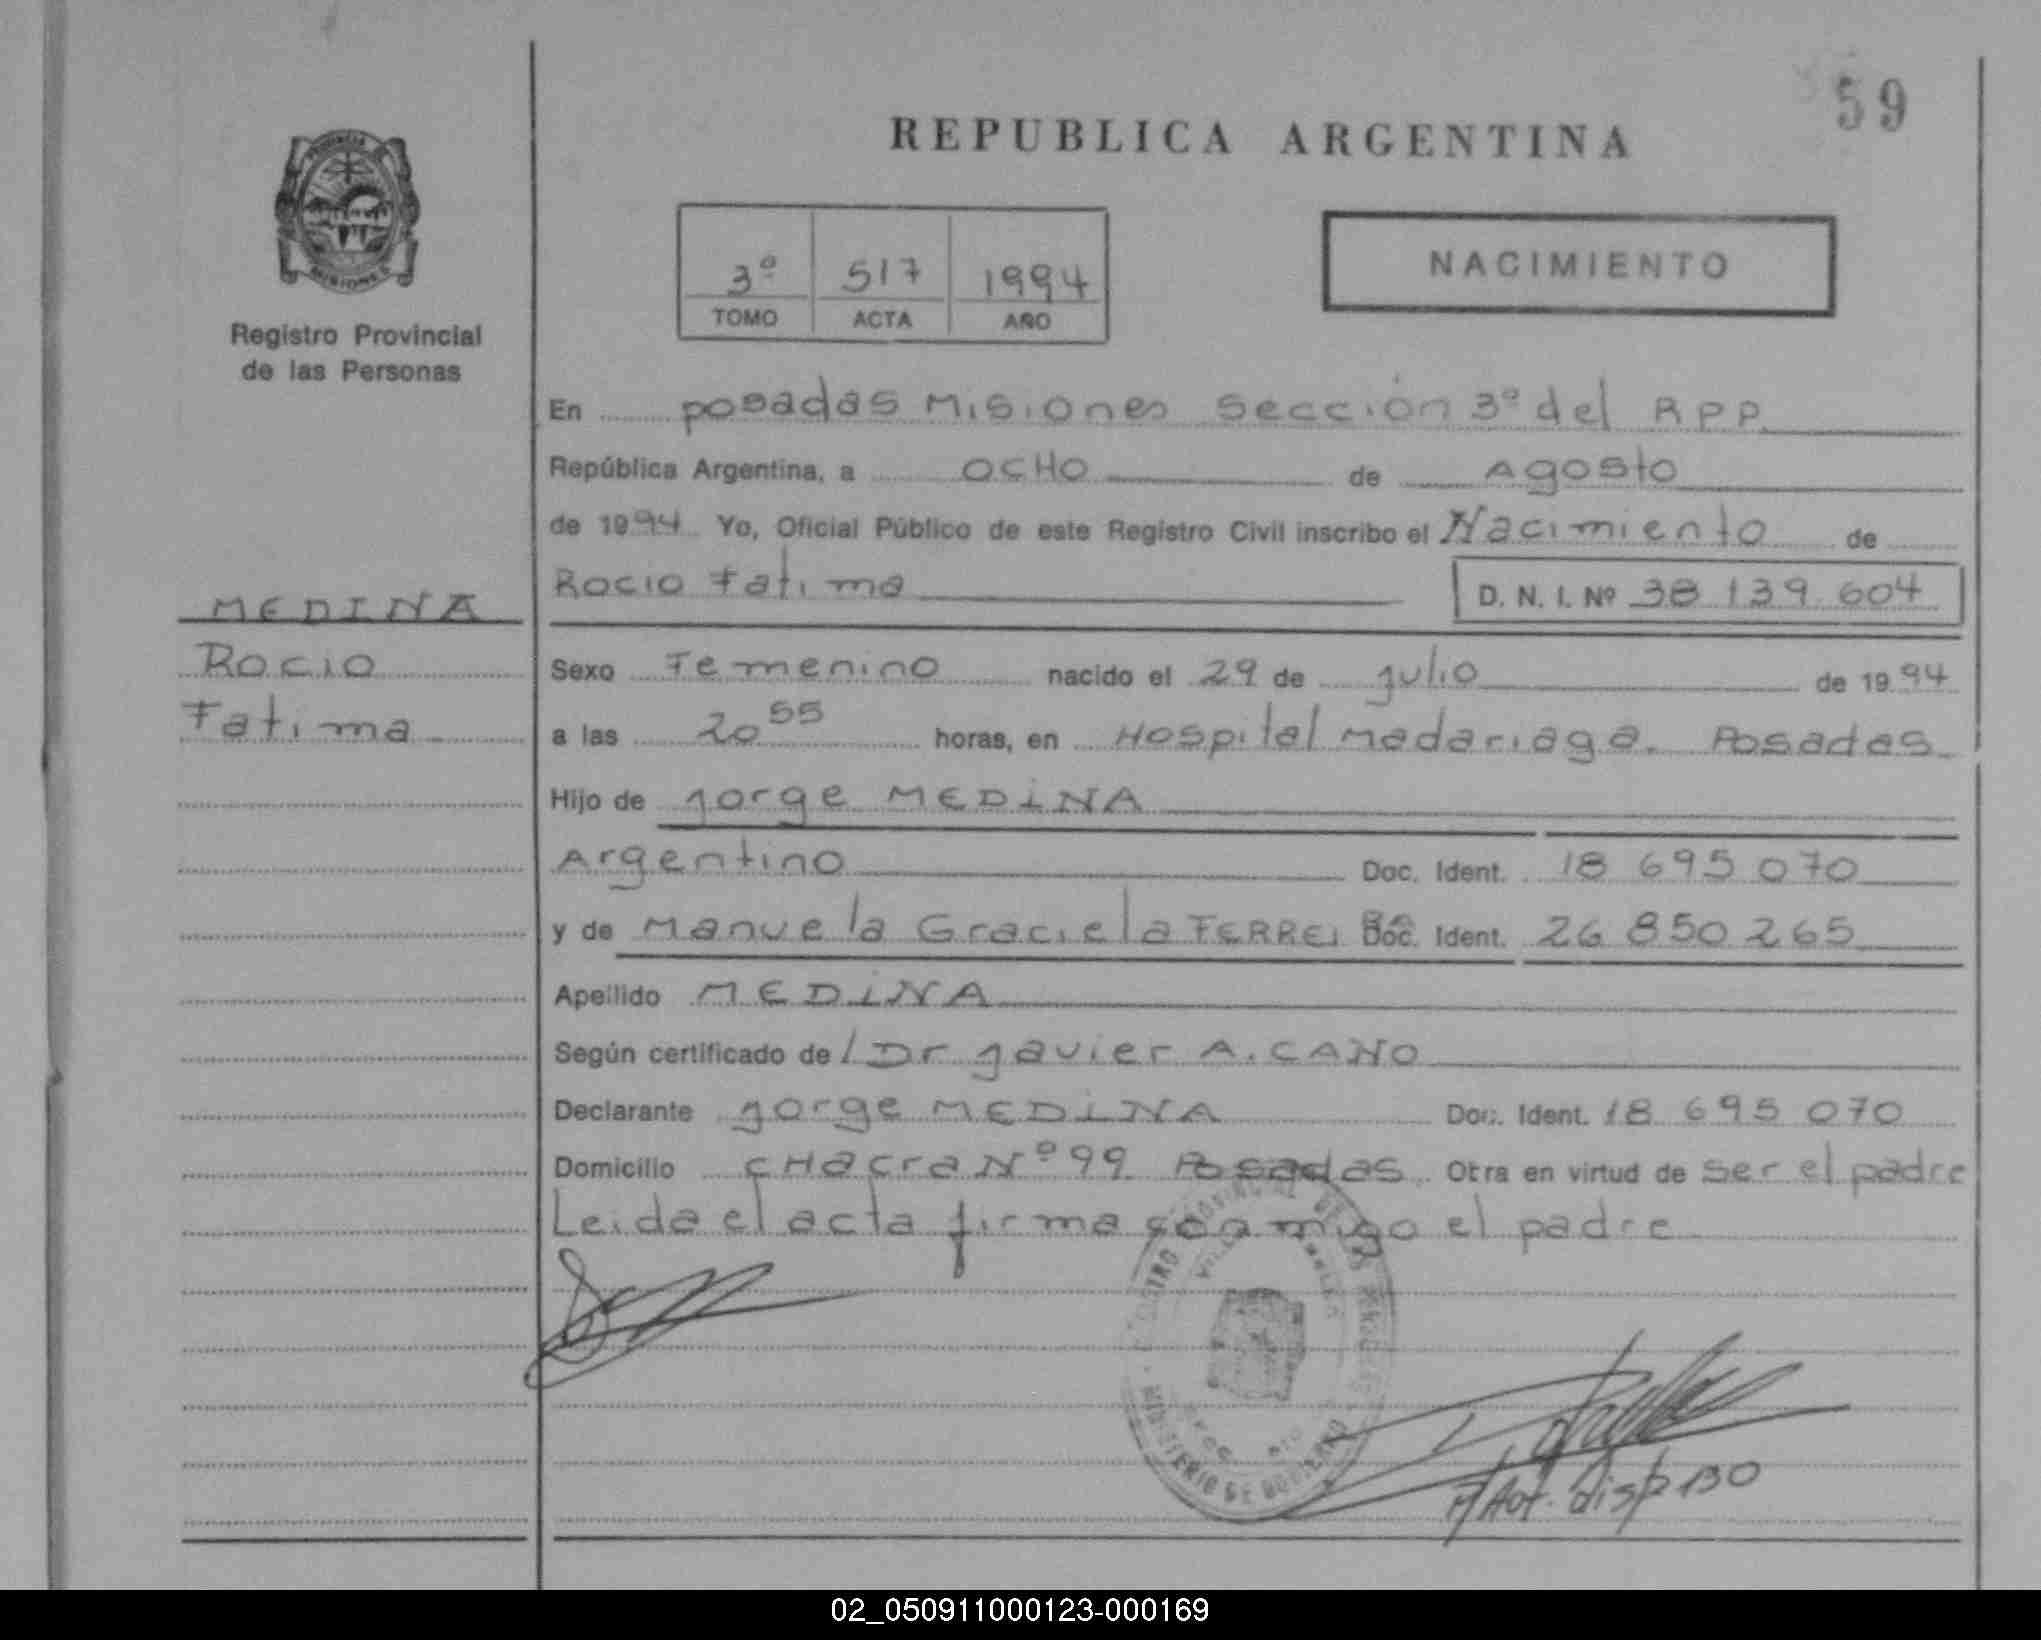 59
REPUBLICA ARGENTINA
PROVINCIA
MISIONES
Registro Provincial
de las Personas
3º 517 1994
TOMO ACTA AÑO
NACIMIENTO
En posadas Misiones Sección 3º del RPP.
República Argentina, a OCHO de Agosto
de 1994 Yo, Oficial Público de este Registro Civil inscribo el Nacimiento de
ROCIO Fatima D. N. I. Nº 38 139 604
MEDINA
Rocio
Fatima
Sexo Femenino nacido el 29 de julio de 1994
a las 20 55 horas, en Hospital Madariaga. Posadas
Hijo de jorge MEDINA
Argentino Doc. Ident. 18 695 070
y de Manuela Graciela FERREI RO Doc. Ident. 26 850 265
Apellido MEDINA
Según certificado de / Dr javier A. CANO
Declarante jorge MEDINA Doc. Ident. 18 695 070
Domicilio CHacra Nº 99 Posadas Otra en virtud de ser el padre
Leida el acta firma conmigo el padre
MINISTERIO DE GOBIERNO
Aut. disp 130
02_050911000123-000169